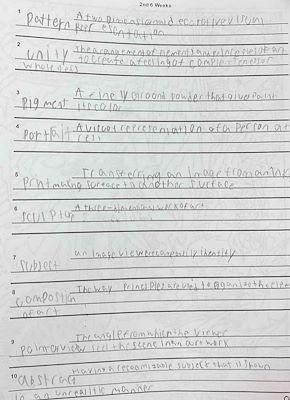 2nd 6 Weeks
1 Pattern A two dimensional decorative visual
repersentation
2 Unity The arrangement of elements and principles of art
to create a feeling of completeness or
wholeness
3 Pigment A fine ground powder that gives paint
its color
4 Portrait A visual representation of a person at
rest
5 Transferring an image from an inked
Printmaking surface to another surface
6 Sculpture A three-dimensional work of art
7 an image viewers can easily identify
Subject
8 The way principles are used to organize the
composition
of art
9 The angle from which the viewer
Point of view sees the scene in an artwork
10 Having a recognizable subject that is shown
abstract
in an unrealistic manner